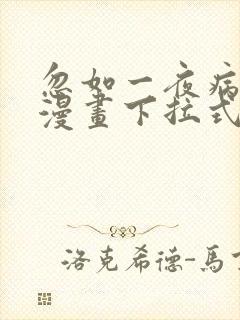 忽如一夜病
漫畫下拉式
洛克希德-馬